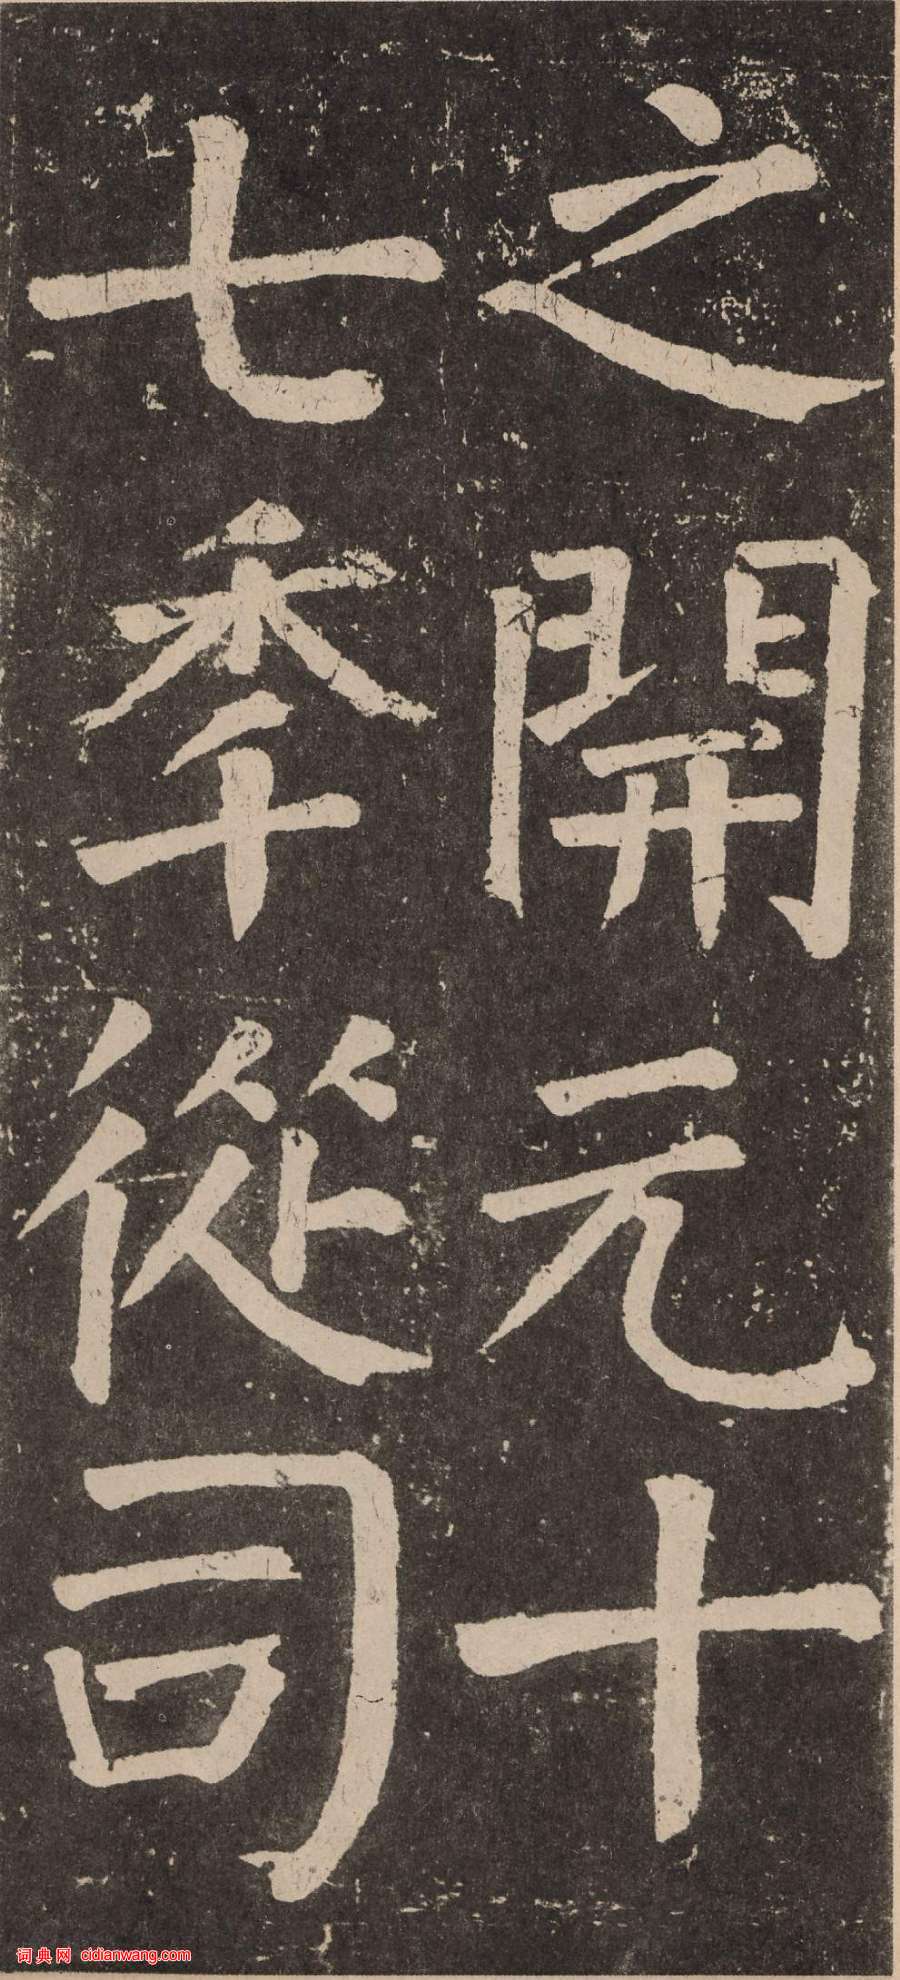 之開元十
七秊從司
词典网 cidianwang.com